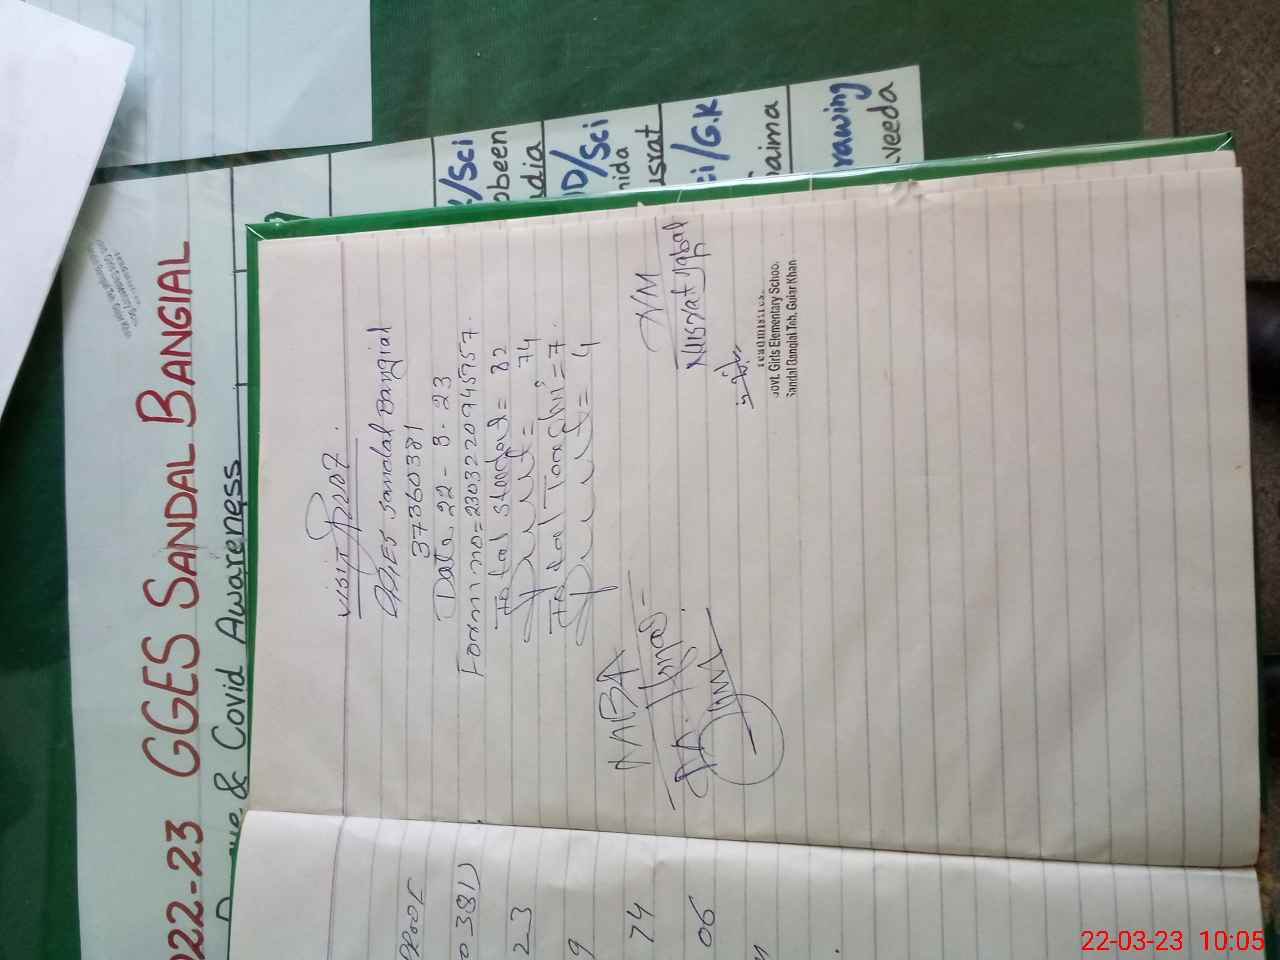 022-23 GGES SANDAL BANGIAL
& Covid Awareness
/Sci
obeen
dia
D/Sci
hida
usrat
ci/G.K
aima
rawing
veeda
Visit Proof.
GGES Sandal Bangial
37360381
Date 22-3-23
Form no=230322094
Total Student = 82
Present = 74
Total Teaching = 7.
Present = 4
HM
Nusrat Iqbal
Govt. Girls Elementary School,
Sandal Bangial Teh. Gujar Khan
proof
0381)
23
9
74
06
22-03-23 10:05